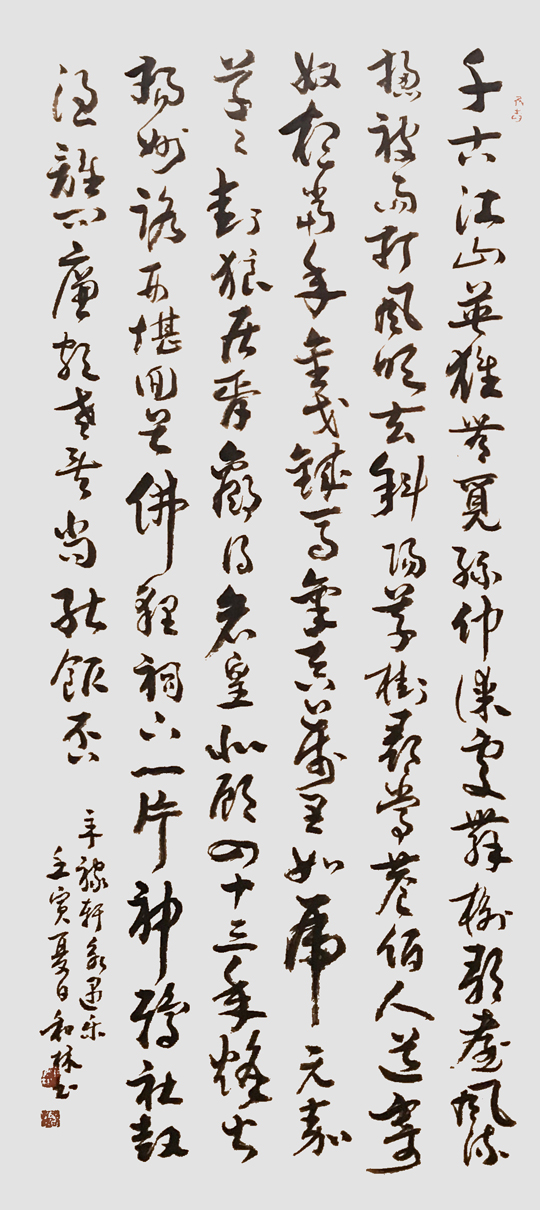 千古江山英雄無覓孫仲謀處舞榭歌臺風流
總被雨打風吹去斜陽草樹尋常巷陌人道寄
奴想當年金戈鐵馬氣吞萬里如虎元嘉
草〻封狼居胥贏得倉皇北顧四十三年烽火
揚州路可堪回首佛貍祠下一片神鴉社鼓
憑誰問廉頗老矣尚能飯否
辛稼軒永遇樂
壬寅夏日和林書